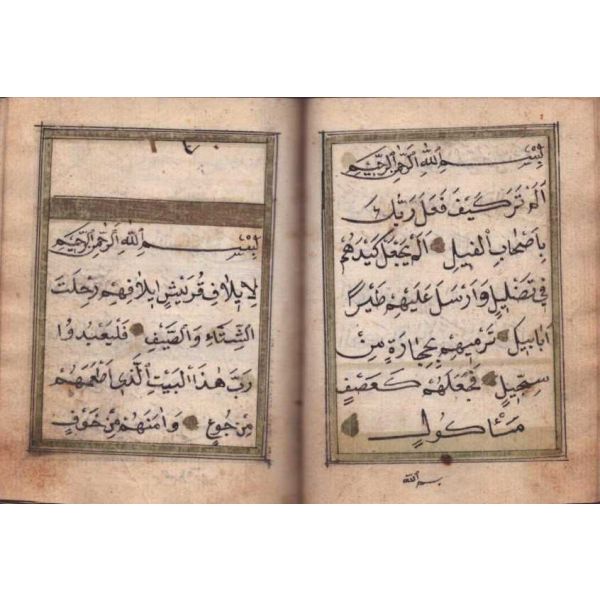 بِسْمِ اللّٰهِ الرَّحْمٰنِ الرَّحِيمِ
اَلَمْ تَرَ كَيْفَ فَعَلَ رَبُّكَ
بِاَصْحَابِ الْفِيلِ اَلَمْ يَجْعَلْ كَيْدَهُمْ
فِي تَضْلِيلٍ وَاَرْسَلَ عَلَيْهِمْ طَيْرًا
اَبَابِيلَ تَرْمِيهِمْ بِحِجَارَةٍ مِنْ
سِجِّيلٍ فَجَعَلَهُمْ كَعَصْفٍ
مَأْكُولٍ
بسم الله
بِسْمِ اللّٰهِ الرَّحْمٰنِ الرَّحِيمِ
لِاِيلَافِ قُرَيْشٍ اِيلَافِهِمْ رِحْلَتَ
الشِّتَاءِ وَالصَّيْفِ فَلْيَعْبُدُوا
رَبَّ هٰذَا الْبَيْتِ الَّذِي اَطْعَمَهُمْ
مِنْ جُوعٍ وَاٰمَنَهُمْ مِنْ خَوْفٍ